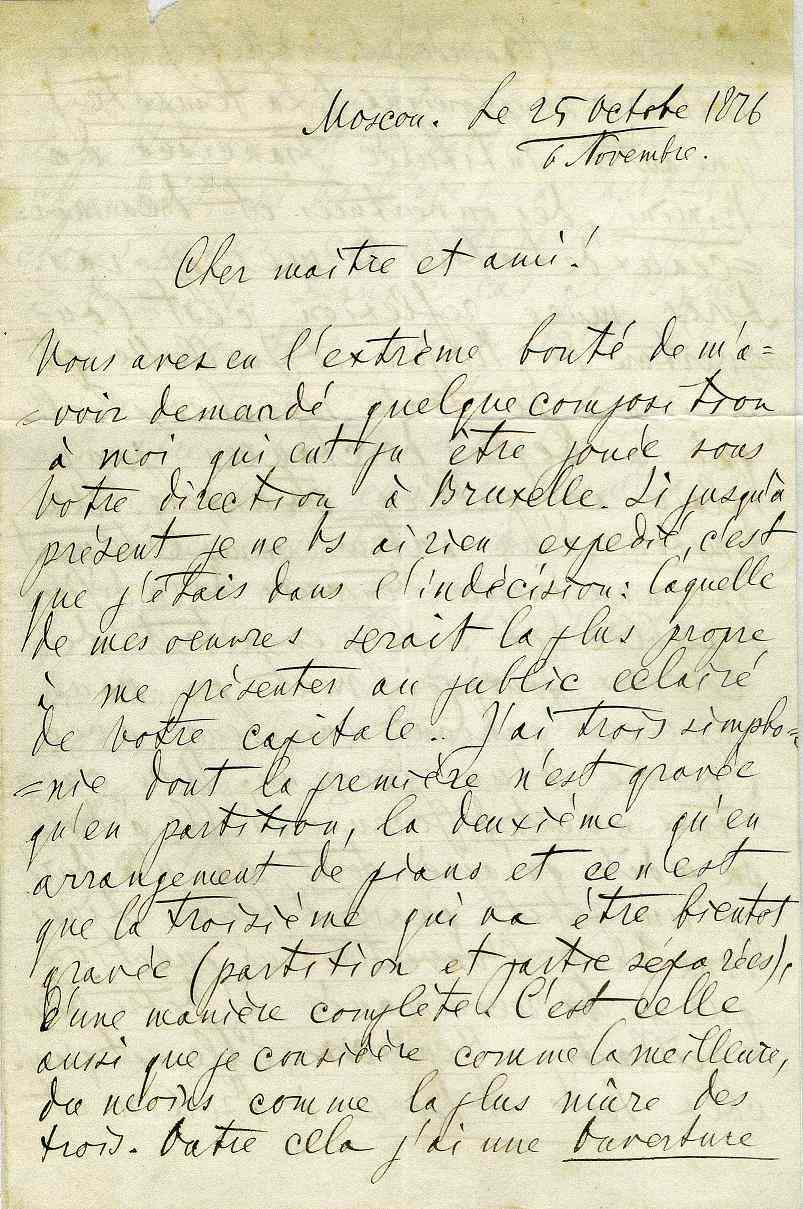 Moscou. Le 25 Octobe 1876
6 Novembre.
Cher maître et ami!
Vous avez eu l'extrème bonté de m'a=
=voir demandé quelque composition
à moi qui eut pu être jouée sous
Votre direction à Bruxelle. Si jusqu'à
présent je ne Vs ai rien expedié, c'est
que j'étais dans l'indécision: laquelle
de mes oeuvres serait la plus propre
à me présenter au public eclairé
de Votre capitale.. J'ai trois simpho=
=nie dont la première n'est gravée
qu'en partition, la deuxième qu'en
arrangement de piano et ce n'est
que la troisième qui va être bientot
gravée (partition et partie séparées),
d'une manière complète. C'est celle
aussi que je considère comme la meilleure,
du moins comme la plus mûre des
trois. Outre cela j'ai une Ouverture